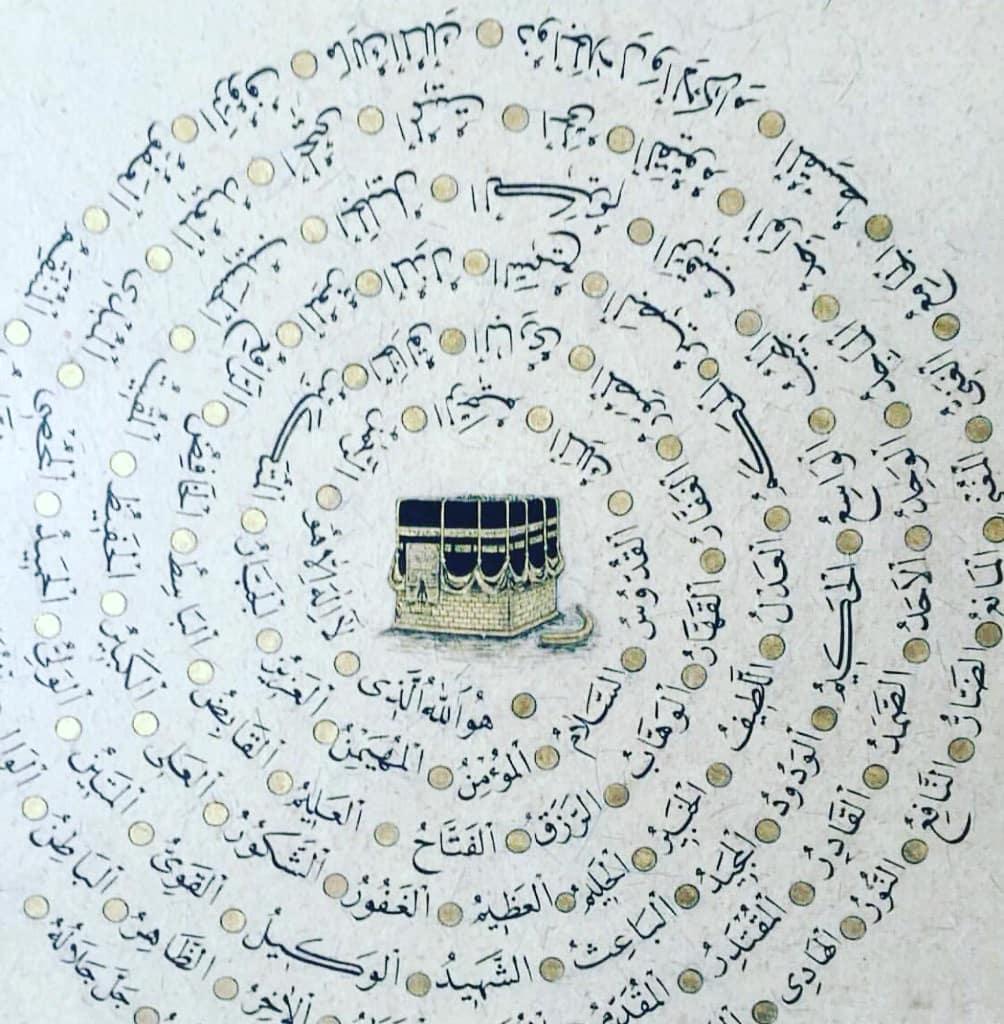 هُوَاللهُ الَّذِى
لَا اِلٰهَ اِلَّا هُوَ
اَلرَّحْمٰنُ
اَلرَّحِيمُ
اَلْمَلِكُ
اَلْقُدُّوسُ
اَلسَّلَامُ
اَلْمُؤْمِنُ
اَلْمُهَيْمِنُ
اَلْعَزِيزُ
اَلْجَبَّارُ
اَلْمُتَكَبِّرُ
اَلْخَالِقُ
اَلْبَارِئُ
اَلْمُصَوِّرُ
اَلْغَفَّارُ
اَلْقَهَّارُ
اَلْوَهَّابُ
اَلرَّزَّقُ
اَلْفَتَّاحُ
اَلْعَلِيمُ
اَلْقَابِضُ
اَلْبَاسِطُ
اَلْخَافِضُ
اَلرَّافِعُ
اَلْمُعِزُّ
اَلْمُذِلُّ
اَلسَّمِيعُ
اَلْبَصِيرُ
اَلْحَكَمُ
اَلْعَدْلُ
اَللَّطِيفُ
اَلْخَبِيرُ
اَلْحَلِيمُ
اَلْعَظِيمُ
اَلْغَفُورُ
اَلشَّكُورُ
اَلْعَلِىُّ
اَلْكَبِيرُ
اَلْحَفِيظُ
اَلْمُقِيتُ
اَلْحَسِيبُ
اَلْجَلِيلُ
اَلْكَرِيمُ
اَلرَّقِيبُ
اَلْمُجِيبُ
اَلْوَاسِعُ
اَلْحَكِيمُ
اَلْوَدُودُ
اَلْمَجِيدُ
اَلْبَاعِثُ
اَلشَّهِيدُ
اَلْوَكِيلُ
اَلْقَوِىُّ
اَلْمَتِينُ
اَلْوَلِىُّ
اَلْحَمِيدُ
اَلْمُحْصِى
اَلْمُبْدِئُ
اَلْمُعِيدُ
اَلْمُحْيِى
اَلْمُمِيتُ
اَلْحَىُّ
اَلْقَيُّومُ
اَلْوَاجِدُ
اَلْمَاجِدُ
اَلْوَاحِدُ
اَلْاَحَدُ
اَلصَّمَدُ
اَلْقَادِرُ
اَلْمُقْتَدِرُ
اَلْمُقَدِّمُ
اَلْاٰخِرُ
اَلظَّاهِرُ
اَلْبَاطِنُ
اَلْمُنْتَقِمُ
اَلْعَفُوُّ
اَلرَّؤُفُ
مَالِكُ الْمُلْكِ
ذُوالْجَلَالِ وَالْاِكْرَامِ
اَلْمُقْسِطُ
اَلْجَامِعُ
اَلْغَنِىُّ
اَلْمَانِعُ
اَلضَّارُّ
اَلنَّافِعُ
اَلنُّورُ
اَلْهَادِى
جَلَّ جَلَالُهُ